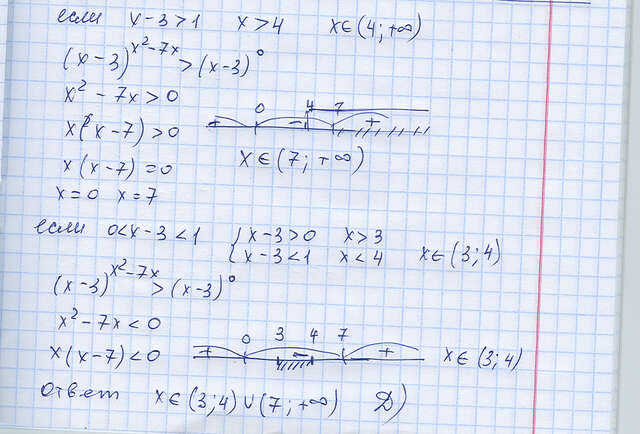 если x-3>1 x>4 x∈(4;+∞)
(x-3)^(x²-7x) > (x-3)⁰
x²-7x>0
x(x-7)>0
+ 0 - 4 7 +
x(x-7)=0
x∈(7;+∞)
x=0 x=7
если 0<x-3<1 { x-3>0 x>3
x-3<1 x<4 x∈(3;4)
(x-3)^(x²-7x) > (x-3)⁰
x²-7x<0
x(x-7)<0
+ 0 3 - 4 7 + x∈(3;4)
ответ x∈(3;4)∪(7;+∞) Д)